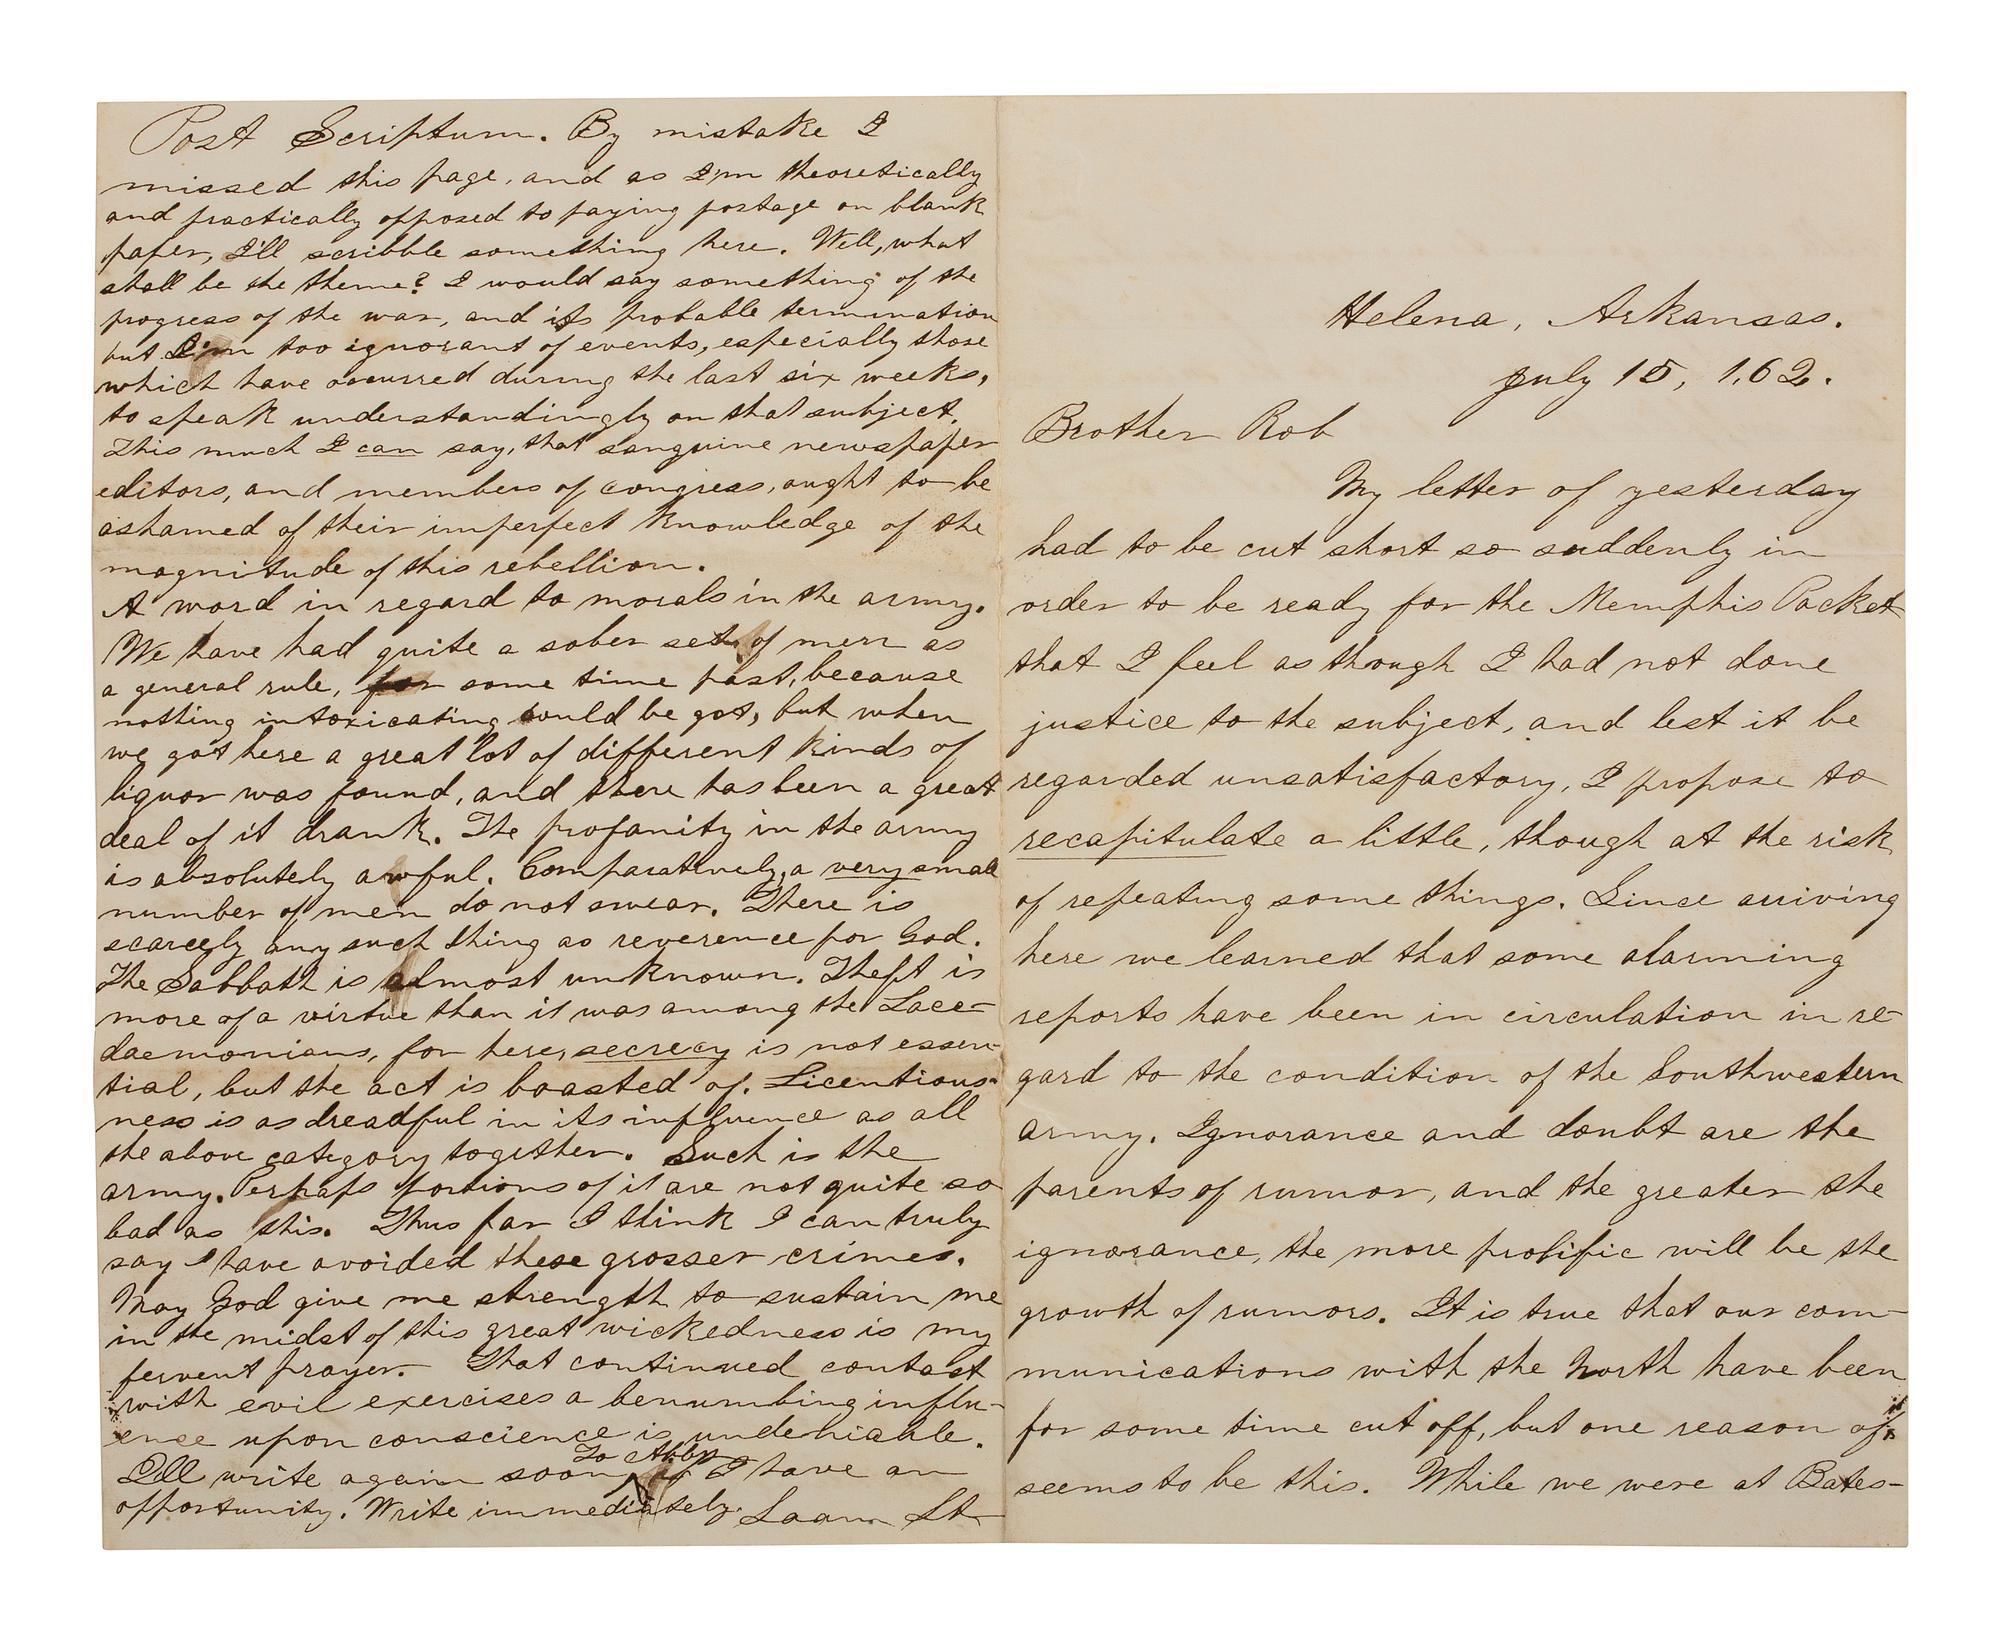 Post Scriptum. By mistake I
missed this page, and as I'm theoretically
and practically opposed to paying postage on blank
paper, I'll scribble something here. Well, what
shall be the theme? I would say something of the
progress of the war, and its probable termination
but I'm too ignorant of events, especially those
which have occurred during the last six weeks,
to speak understandingly on that subject.
This much I can say, that sanguine newspaper
editors, and members of congress, ought to be
ashamed of their imperfect knowledge of the
magnitude of this rebellion.
A word in regard to morals in the army.
We have had quite a sober set of men as
a general rule, for some time past, because
nothing intoxicating could be got, but when
we got here a great lot of different kinds of
liquor was found, and there has been a great
deal of it drank. The profanity in the army
is absolutely awful. Comparatively, a very small
number of men do not swear. There is
scarcely any such thing as reverence for God.
The Sabbath is almost unknown. Theft is
more of a virtue than it was among the Lace-
daemonians, for here, secrecy is not essen-
tial, but the act is boasted of. Licentious-
ness is as dreadful in its influence as all
the above category together. Such is the
army. Perhaps portions of it are not quite so
bad as this. Thus far I think I can truly
say I have avoided these grosser crimes.
May God give me strength to sustain me
in the midst of this great wickedness is my
fervent prayer. That continued contact
with evil exercises a benumbing influ-
ence upon conscience is undeniable.
To Abby
I'll write again soon if I have an
opportunity. Write immediately.
Helena, Arkansas.
July 15, 1,62.
Brother Rob
My letter of yesterday
had to be cut short so suddenly in
order to be ready for the Memphis Packet
that I feel as though I had not done
justice to the subject, and lest it be
regarded unsatisfactory, I propose to
recapitulate a little, though at the risk
of repeating some things. Since arriving
here we learned that some alarming
reports have been in circulation in re-
gard to the condition of the Southwestern
army. Ignorance and doubt are the
parents of rumor, and the greater the
ignorance, the more prolific will be the
growth of rumors. It is true that our com-
munications with the North have been
for some time cut off, but one reason of it
seems to be this. While we were at Bates-